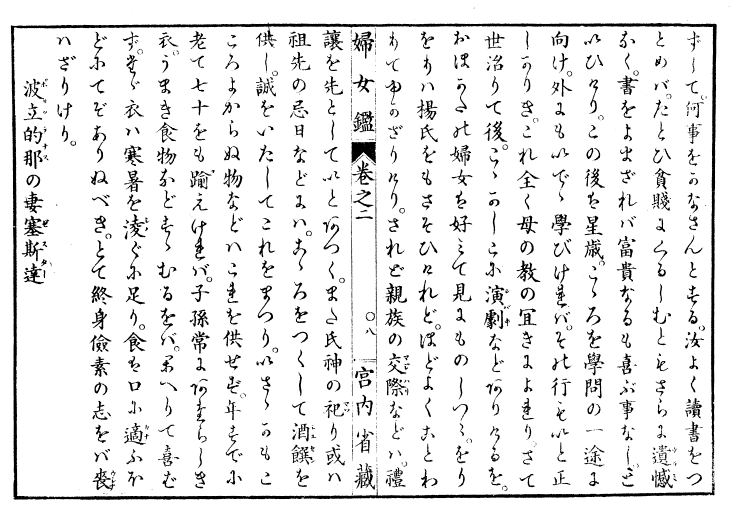 ずして。何事をかなさんとする。汝よく讀書をつ
とめバ。たとひ貧賤にくるしむともさらに遺憾
なく。書をよまざれバ富貴なるも喜ぶ事なし。と
いひけり。この後を星歳。こゝろを學問の一途に
向け。外にもいでゝ學びけれバ。その行もいと正
しかりき。これ全く母の教の宜きによれり。さて
世治りて後。こゝかしこに演劇などありけるを。
おほかたの婦女を好みて見にものしつゝ。をり
をりハ揚氏をもさそひけれど。ほどよくことわ
りてゆかざりけり。されど親族の交際などハ。禮
婦女鑑 卷之二 〇八 宮内省藏
讓を先としていとあつく。また氏神の祀り或ハ
祖先の忌日などにハ。こゝろをつくして酒饌を
供し。誠をいたしてこれをまつり。いさゝかもこ
ころよからぬ物などハこれを供せず。年すでに
老て七十をも踰えけれバ。子孫常にあたらしき
衣。うまき食物などすゝむるをバ。かへりて喜む
ず。たゞ衣ハ寒暑を凌ぐに足り。食ハ口に適ふほ
どにてぞありぬべき。とて終身儉素の志をバ喪
ハざりけり。
波立的那の妻塞斯達